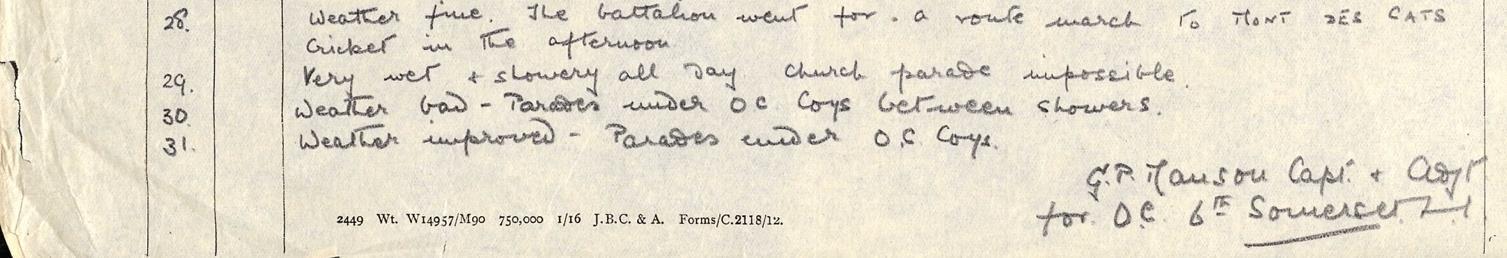 28. Weather fine. The battalion went for a route march to MONT DES CATS
Cricket in the afternoon
29. Very wet + showery all day church parade impossible.
30. Weather bad - Parades under OC Coys between showers.
31. Weather improved - Parades under O.C Coys.
G.P. Manson Capt. + Adjt
for O.C. 6TH Somerset L I
2449 Wt. W14957/M90 750,000 1/16 J.B.C. & A. Forms/C.2118/12.